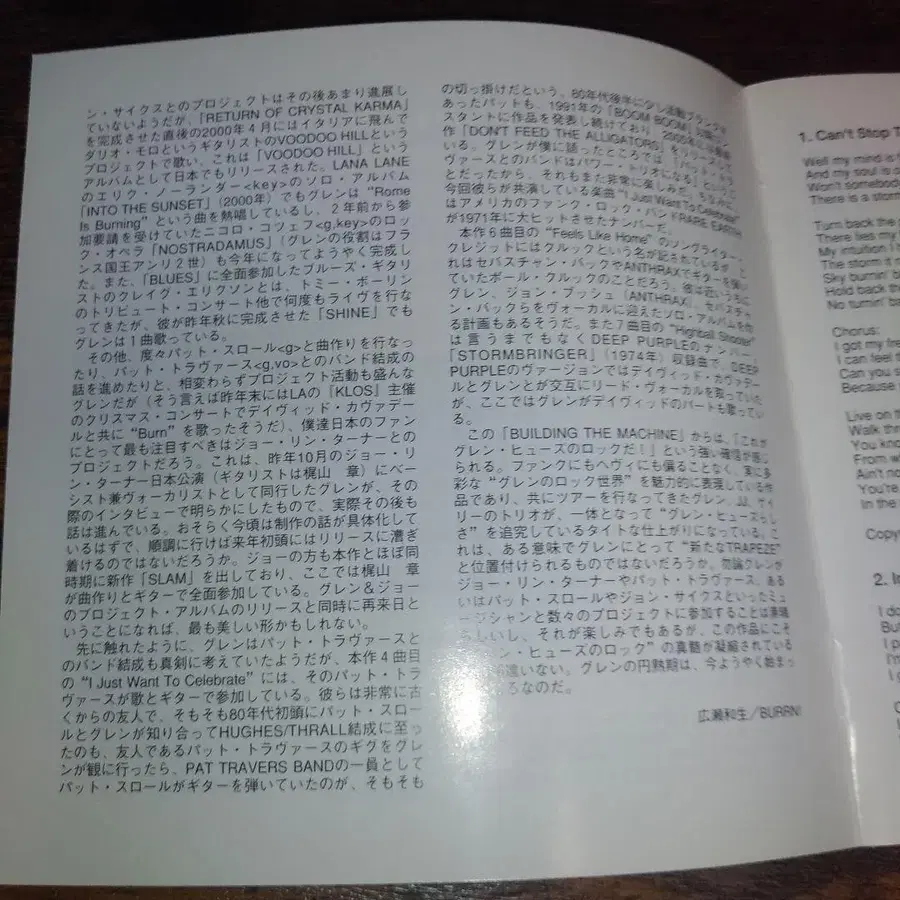 ン・サイクスとのプロジェクトはその後あまり進展し
ていないようだが、「RETURN OF CRYSTAL KARMA」
を完成させた直後の2000年４月にはイタリアに飛んで
ダリオ・モロというギタリストのVOODOO HILLという
プロジェクトで歌い、これは「VOODOO HILL」という
アルバムとして日本でもリリースされた。LANA LANE
のエリク・ノーランダー<key>のソロ・アルバム
「INTO THE SUNSET」(2000年) でもグレンは “Rome
Is Burning” という曲を熱唱しているし、２年前から参
加要請を受けていたニコロ・コツェフ<g,key>のロッ
ク・オペラ「NOSTRADAMUS」(グレンの役割はフラ
ンス国王アンリ２世) も今年になってようやく完成し
た。また、「BLUES」に全面参加したブルーズ・ギタリ
ストのクレイグ・エリクソンとは、トミー・ボーリン
のトリビュート・コンサート他で何度もライヴを行な
ってきたが、彼が昨年秋に完成させた「SHINE」でも
グレンは１曲歌っている。
その他、度々パット・スロール<g>と曲作りを行なっ
たり、パット・トラヴァース<g,vo>とのバンド結成の
話を進めたりと、相変わらずプロジェクト活動も盛んな
グレンだが (そう言えば昨年末にはLAの『KLOS』主催
のクリスマス・コンサートでデイヴィッド・カヴァデー
ルと共に “Burn” を歌ったそうだ)、僕達日本のファン
にとって最も注目すべきはジョー・リン・ターナーとの
プロジェクトだろう。これは、昨年10月のジョー・リ
ン・ターナー日本公演 (ギタリストは梶山　章) にベー
シスト兼ヴォーカリストとして同行したグレンが、その
際のインタビューで明らかにしたもので、実際その後も
話は進んでいる。おそらく今頃は制作の話が具体化して
いるはずで、順調に行けば来年初頭にはリリースに漕ぎ
着けるのではないだろうか。ジョーの方も本作とほぼ同
時期に新作「SLAM」を出しており、ここでは梶山　章
が曲作りとギターで全面参加している。グレン＆ジョー
のプロジェクト・アルバムのリリースと同時に再来日と
いうことになれば、最も美しい形かもしれない。
先に触れたように、グレンはパット・トラヴァースと
のバンド結成も真剣に考えていたようだが、本作４曲目
の “I Just Want To Celebrate” には、そのパット・トラ
ヴァースが歌とギターで参加している。彼らは非常に古
くからの友人で、そもそも80年代初頭にパット・スロー
ルとグレンが知り合ってHUGHES/THRALL結成に至っ
たのも、友人であるパット・トラヴァースのギグをグレ
ンが観に行ったら、PAT TRAVERS BANDの一員として
パット・スロールがギターを弾いていたのが、そもそも
の切っ掛けだという。80年代後半に少し活動ブランクが
あったパットも、1991年の「BOOM BOOM」以降コン
スタントに作品を発表し続けており
作「DON'T FEED THE ALLIGATORS」をリリース
いる。グレンが僕に語ったところでは「パット・トラ
ヴァースとのバンドはパワー・トリオになる」というこ
とだったから、それもまた非常に楽しみだ。ちなみに、
今回彼らが共演している楽曲 “I Just Want To Celebrate”
はアメリカのファンク・ロック・バンドRARE EARTH
が1971年に大ヒットさせたナンバー。
本作６曲目の “Feels Like Home” のソングライター・
クレジットにはクルックという名が記されているが、こ
れはセバスチャン・バックやANTHRAXでギターを弾い
ていたポール・クルックのことだろう。彼は近いうちに
グレン、ジョン・ブッシュ (ANTHRAX)、セバスチャ
ン・バックらをヴォーカルに迎えたソロ・アルバムを作
る計画もあるそうだ。また７曲目の “Highball Shooter”
は言うまでもなくDEEP PURPLEのナンバー。
「STORMBRINGER」(1974年) 収録曲で、DEEP
PURPLEのヴァージョンではデイヴィッド・カヴァデー
ルとグレンとが交互にリード・ヴォーカルを取っていた
が、ここではグレンがデイヴィッドのパートも歌ってい
る。
この「BUILDING THE MACHINE」からは、「これが
グレン・ヒューズのロックだ！」という強い確信が感じ
られる。ファンクにもヘヴィにも偏ることなく、実に多
彩な “グレンのロック世界” を魅力的に表現している作
品であり、共にツアーを行なってきたグレン、JJ、ゲイ
リーのトリオが、一体となって “グレン・ヒューズらし
さ” を追究しているタイトな仕上がりになっている。こ
れは、ある意味でグレンにとって “新たなTRAPEZE”
と位置付けられるものではないだろうか。勿論グレンが
ジョー・リン・ターナーやパット・トラヴァース、ある
いはパット・スロールやジョン・サイクスといったミュ
ージシャンと数々のプロジェクトに参加することは素晴
らしいし、それが楽しみでもあるが、この作品にこそ
ン・ヒューズのロック” の真髄が凝縮されている
違いない。グレンの円熟期は、今ようやく始まっ
ろなのだ。
広瀬和生／BURRN!
1. Can't Stop T
Well my mind is
And my soul is
Won't somebody
There is a stor
Turn back the
There lies my
My intuition I
The storm it
Sky burnin'
Hold back the
No turnin' ba
Chorus:
I got my fre
I can feel t
Can you s
Because
Live on th
Walk the
You kno
From w
Ain't no
You're
In the
Copy
2. I
I do
But
I p
I g